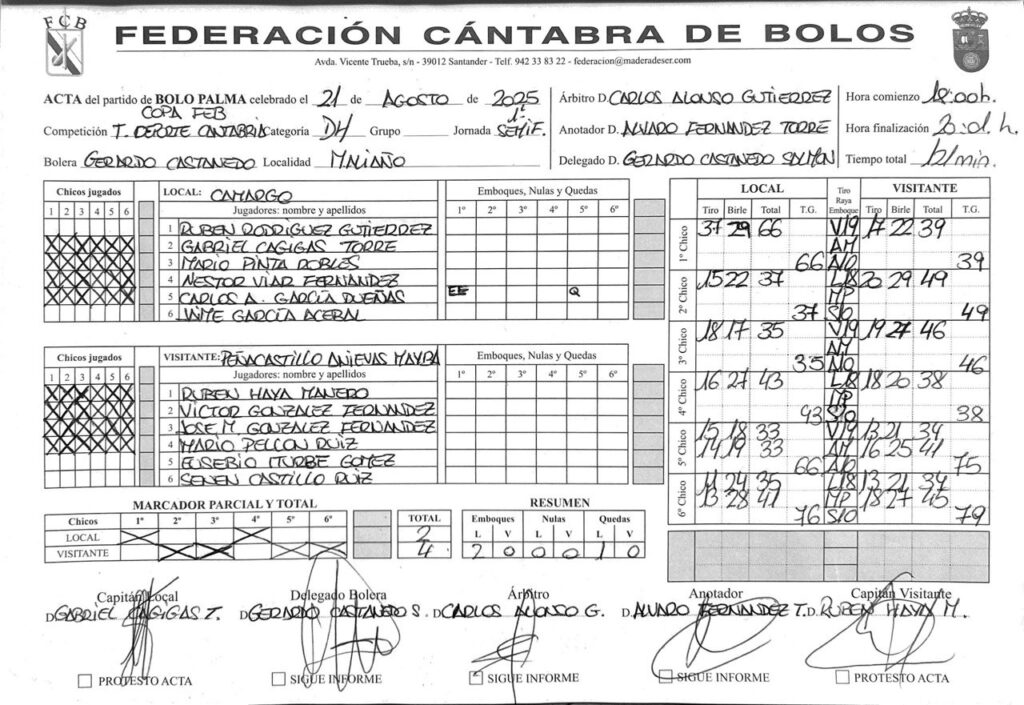 FCB
FEDERACIÓN CÁNTABRA DE BOLOS
Avda. Vicente Trueba, s/n - 39012 Santander - Telf. 942 33 83 22 - federacion@maderadeser.com
ACTA del partido de BOLO PALMA celebrado el 21 de AGOSTO de 2025
COPA FEB
Competición T. DEPORTE CANTABRIA Categoría DH Grupo Jornada 1ª SEMIF.
Bolera GERARDO CASTANEDO Localidad MALIAÑO
Árbitro D. CARLOS ALONSO GUTIERREZ
Anotador D. ALVARO FERNANDEZ TORRE
Delegado D. GERARDO CASTANEDO SALMON
Hora comienzo 18:00h.
Hora finalización
Tiempo total
Chicos jugados
1 2 3 4 5 6
LOCAL: CAMARGO
Jugadores: nombre y apellidos
Emboques, Nulas y Quedas
1º 2º 3º 4º 5º 6º
1 RUBEN RODRIGUEZ GUTIERREZ
2 GABRIEL CAGIGAS TORRE
3 MARIO PINTA ROBLES
4 NESTOR VIAR FERNANDEZ
5 CARLOS A. GARCÍA DUEÑAS EE Q
6 JAIME GARCÍA ACEBAL
Chicos jugados
1 2 3 4 5 6
VISITANTE: PEÑACASTILLO ANIEVAS MAYBA
Jugadores: nombre y apellidos
Emboques, Nulas y Quedas
1º 2º 3º 4º 5º 6º
1 RUBEN HAYA MANERO
2 VICTOR GONZALEZ FERNANDEZ
3 JOSE M. GONZALEZ FERNANDEZ
4 MARIO PELLON RUIZ
5 EUSEBIO ITURBE GOMEZ
6 SENEN CASTILLO RUIZ
MARCADOR PARCIAL Y TOTAL
Chicos 1º 2º 3º 4º 5º 6º TOTAL
LOCAL 2
VISITANTE 4
RESUMEN
Emboques Nulas Quedas
L V L V L V
2 0 0 0 1 0
LOCAL Tiro Raya Emboque VISITANTE
Tiro Birle Total T.G. Tiro Birle Total T.G.
1º Chico 37 29 66 V19 17 22 39
AM
66 A/O 39
2º Chico 15 22 37 L18 20 29 49
MP
37 S/O 49
3º Chico 18 17 35 V19 19 27 46
AM
35 A/O 46
4º Chico 16 27 43 L18 18 20 38
MP
43 S/O 38
5º Chico 15 18 33 V19 13 21 34
14 19 33 AM 16 25 41
66 A/O 75
6º Chico 11 24 35 L18 13 21 34
13 28 41 MP 18 27 45
76 S/O 79
Capitán Local
D. GABRIEL CAGIGAS T.
Delegado Bolera
D. GERARDO CASTANEDO S.
Árbitro
D. CARLOS ALONSO G.
Anotador
D. ALVARO FERNANDEZ T.
Capitán Visitante
D. RUBEN HAYA M.
PROTESTO ACTA
SIGUE INFORME
SIGUE INFORME
SIGUE INFORME
PROTESTO ACTA